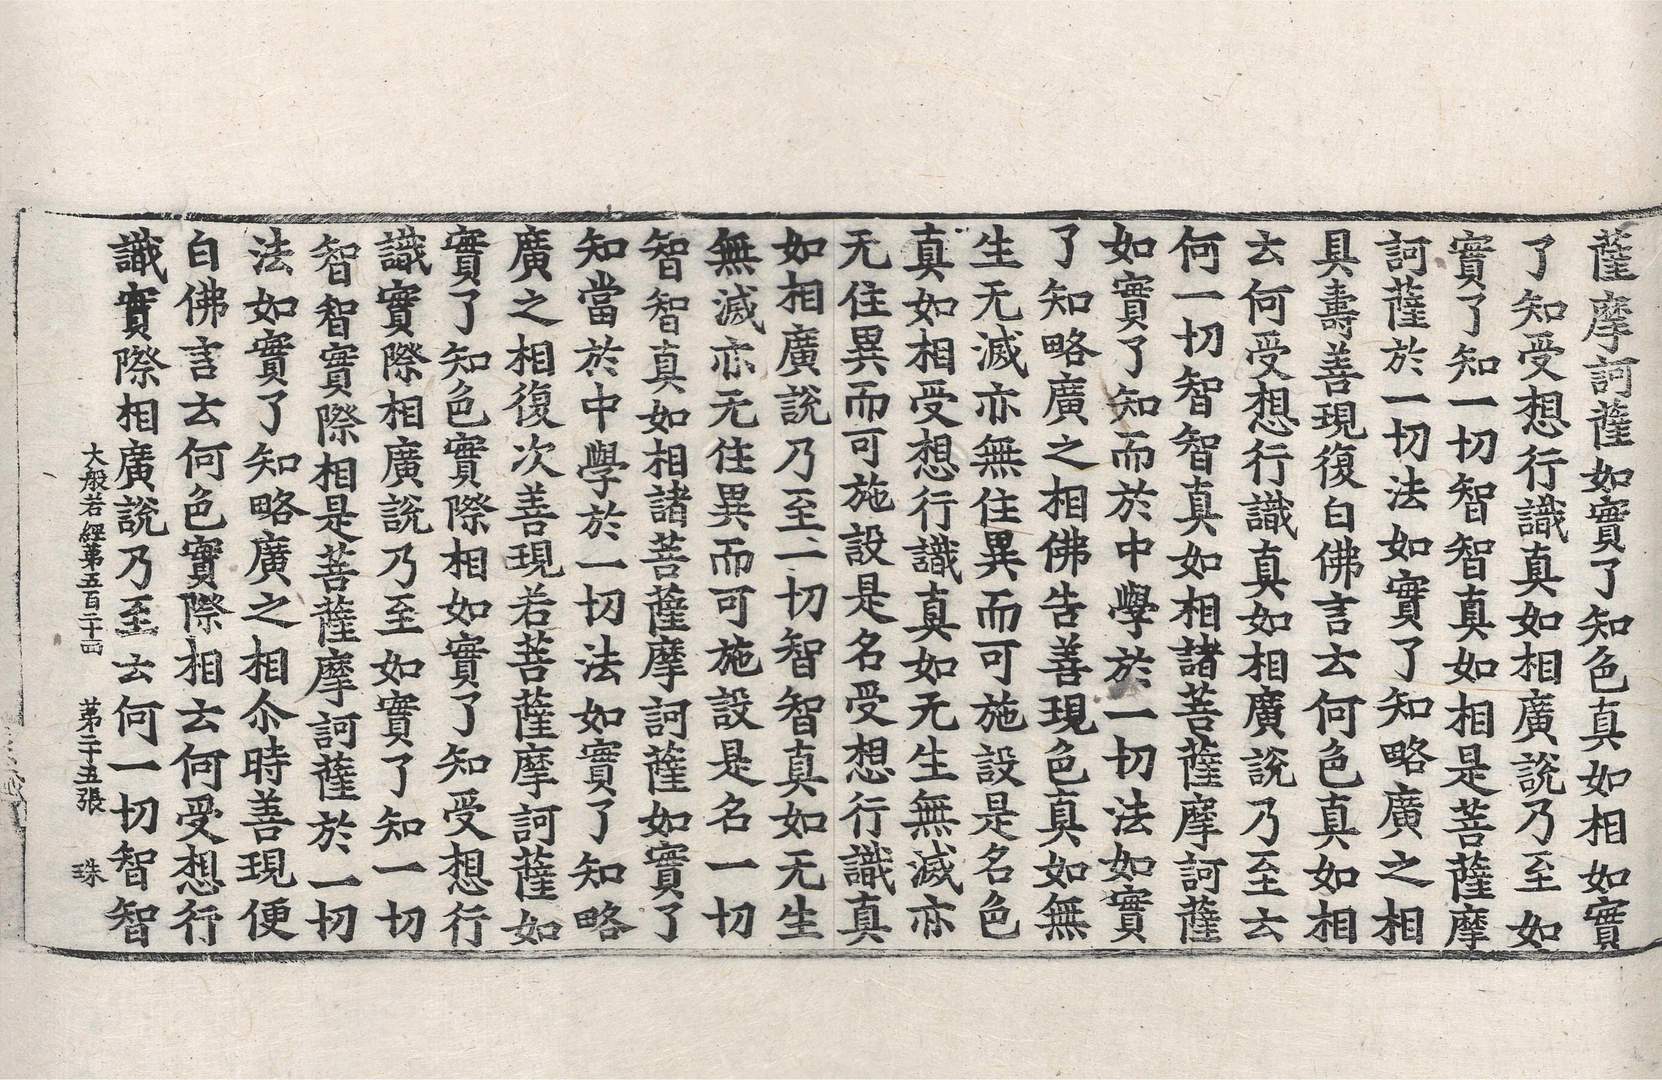 薩摩訶薩如實了知色真如相如實
了知受想行識真如相廣說乃至如
實了知一切智智真如相是菩薩摩
訶薩於一切法如實了知略廣之相
具壽善現復白佛言云何色真如相
云何受想行識真如相廣說乃至云
何一切智智真如相諸菩薩摩訶薩
如實了知而於中學於一切法如實
了知略廣之相佛告善現色真如無
生无滅亦無住異而可施設是名色
真如相受想行識真如无生無滅亦
无住異而可施設是名受想行識真
如相廣說乃至一切智智真如无生
無滅亦无住異而可施設是名一切
智智真如相諸菩薩摩訶薩如實了
知當於中學於一切法如實了知略
廣之相復次善現若菩薩摩訶薩如
實了知色實際相如實了知受想行
識實際相廣說乃至如實了知一切
智智實際相是菩薩摩訶薩於一切
法如實了知略廣之相尒時善現便
白佛言云何色實際相云何受想行
識實際相廣說乃至云何一切智智
大般若經第五百二十四 第二十五張 珠